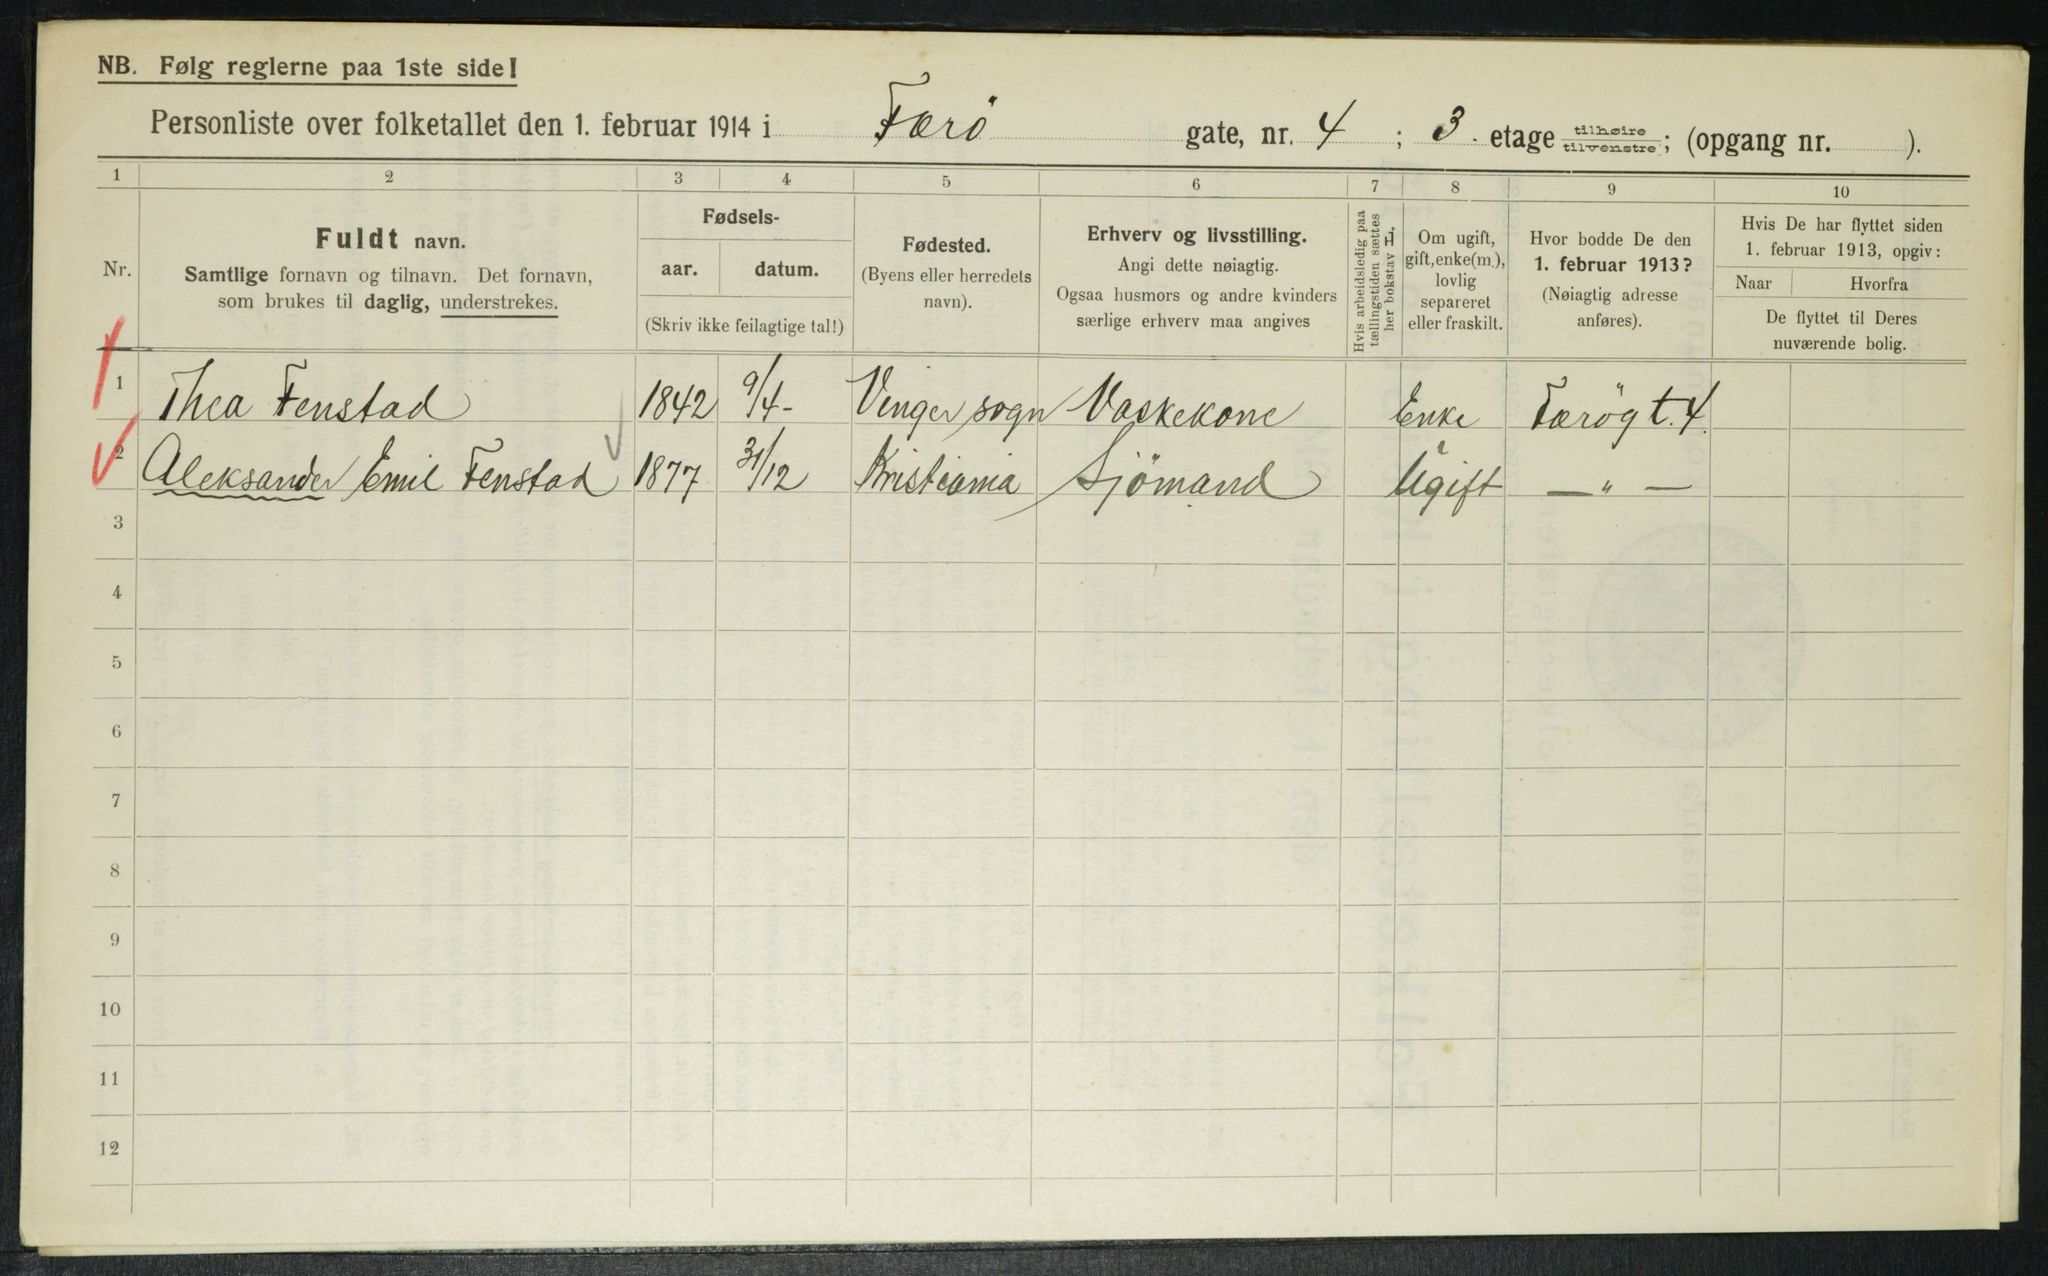 NB. Følg reglerne paa 1ste side!
Personliste over folketallet den 1. februar 1914 i Færö gate, nr. 4 ; 3. etage tilhøire tilvenstre; (opgang nr. ).
1 2 3 4 5 6 7 8 9 10
Nr.
Fuldt navn.
Samtlige fornavn og tilnavn. Det fornavn,
som brukes til daglig, understrekes.
Fødsels-
aar. datum.
(Skriv ikke feilagtige tal!)
Fødested.
(Byens eller herredets
navn).
Erhverv og livsstilling.
Angi dette nøiagtig.
Ogsaa husmors og andre kvinders
særlige erhverv maa angives
Hvis arbeidsledig paa
tællingstiden sættes
her bokstav L.
Om ugift,
gift, enke(m.),
lovlig
separeret
eller fraskilt.
Hvor bodde De den
1. februar 1913?
(Nøiagtig adresse
anføres).
Hvis De har flyttet siden
1. februar 1913, opgiv:
Naar Hvorfra
De flyttet til Deres
nuværende bolig.
1 Thea Fenstad 1842 9/4- Vinger sogn Vaskekone Enke Færögt. 4.
2 Aleksander Emil Fenstad 1877 31/12 Kristiania Sjömand Ugift — " —
3
4
5
6
7
8
9
10
11
12